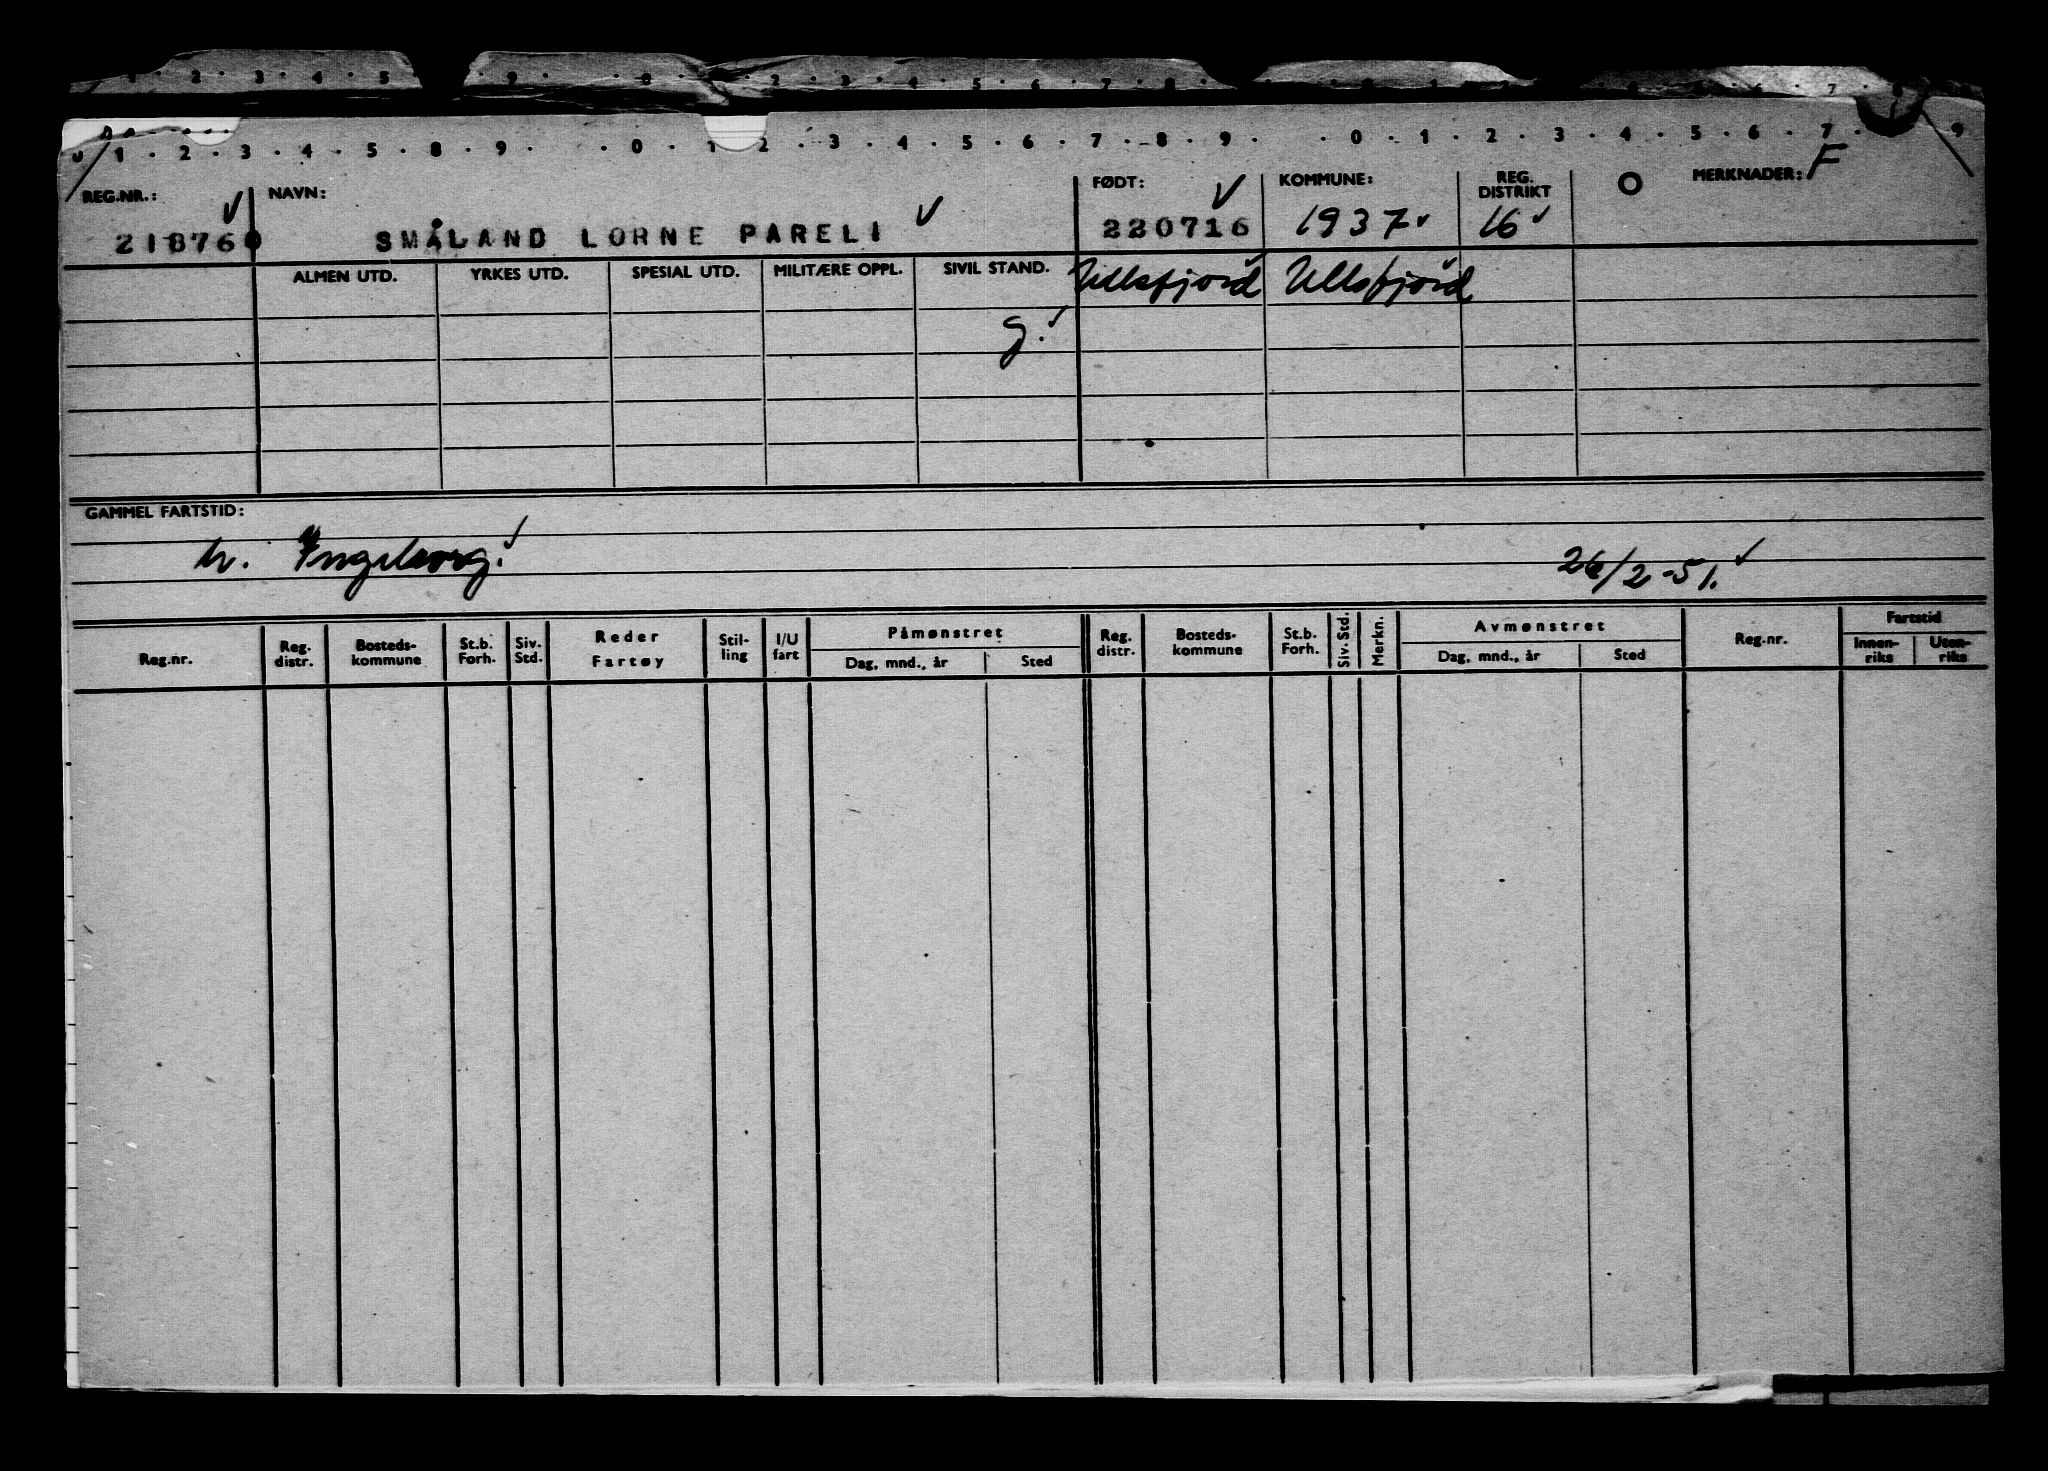 1 · 2 · 3 · 4 · 5 · 8 · 9 · · 0 · 1 · 2 · 3 · 4 · 5 · 6 · 7 · 8 · 9 · · 0 · 1 · 2 · 3 · 4 · 5 · 6 · 7 · 9
REG.NR.: NAVN: FØDT: KOMMUNE: REG. DISTRIKT O MERKNADER: F
21876 SMÅLAND LORNE PARELI 220716 1937 16
ALMEN UTD. YRKES UTD. SPESIAL UTD. MILITÆRE OPPL. SIVIL STAND. Ullsfjord Ullsfjord
g.
GAMMEL FARTSTID:
h. Ingeborg. 26/2-51.
Reg.nr. Reg. distr. Bosteds-kommune St.b. Forh. Siv. Std. Reder Fartøy Stil-ling I/U fart Påmønstret Dag, mnd., år Sted Reg. distr. Bosteds-kommune St.b. Forh. Siv. Std. Merkn. Avmønstret Dag, mnd., år Sted Reg.nr. Fartstid Innen-riks Uten-riks